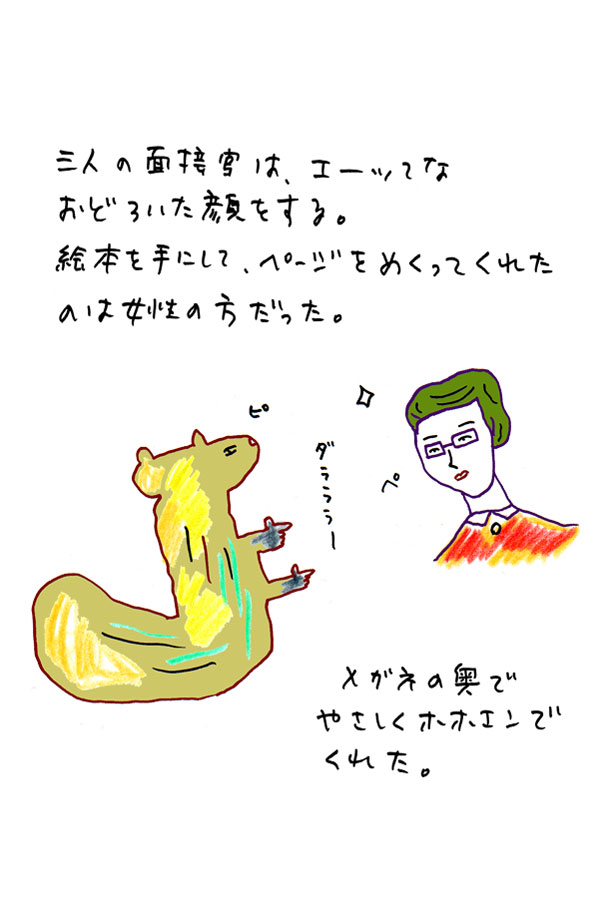 三人の面接官は、エーッてな
おどろいた顔をする。
絵本を手にして、ページをめくってくれた
のは女性の方だった。
ピ
ダララララー
ペ
メガネの奥で
やさしくホホエンで
くれた。